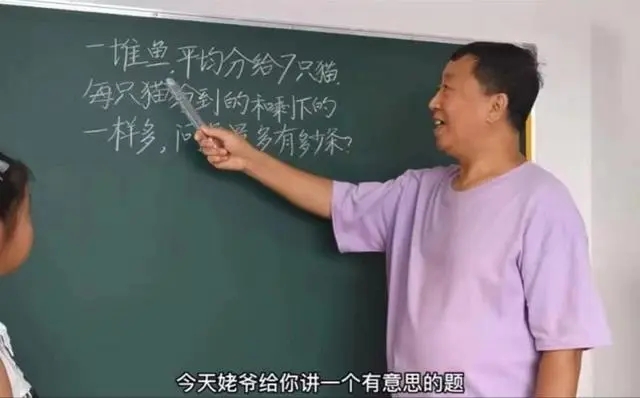 一堆鱼,平均分给7只猫.
每只猫到的和剩下的
一样多,问最多有多少条?
今天姥爷给你讲一个有意思的题